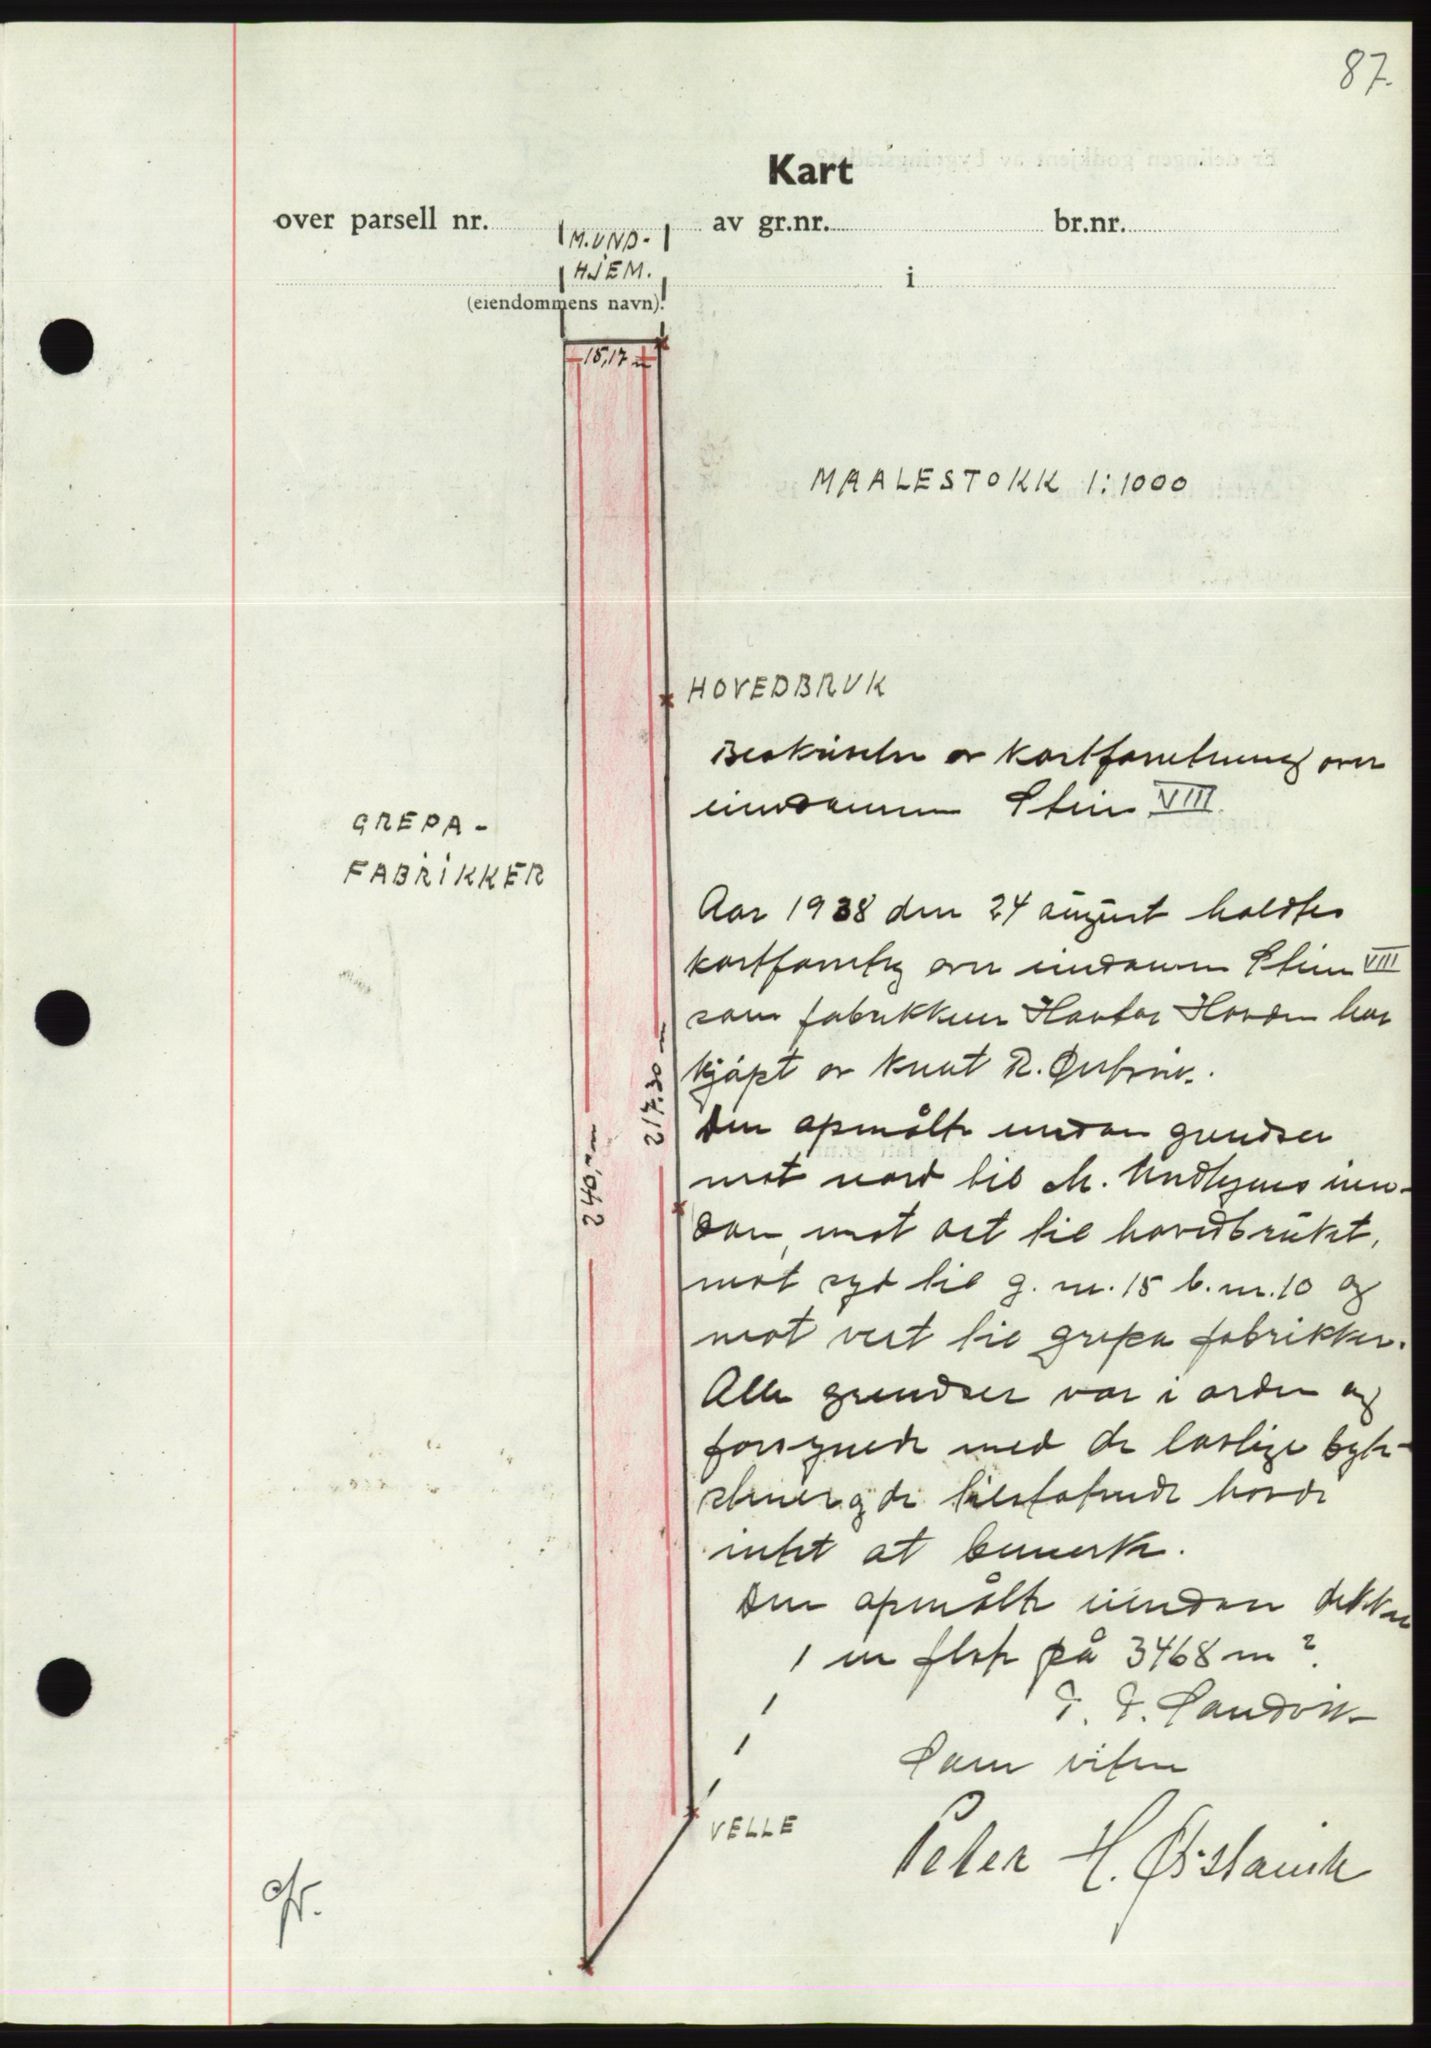 87.
Kart
over parsell nr. av gr.nr. br.nr.
M. UND-
HJEM.
i
(eiendommens navn).
15,17 m
MAALESTOKK 1:1000
HOVEDBRUK
Beskrivelse av kartforretning over
eiendommen Stein VIII.
GREPA-
FABRIKKER
Aar 1938 den 24 august holdtes
kartforretng over eiendommen Stein VIII
som fabrikkeier Hovden har
kjøpt av Knut R. Ørstavik.
217,30 m
240,- m
Den opmålte eiendom grendser
mot nord til M. Undhjems eien-
dom, mot øst til hovedbruket,
mot syd til g. nr. 15 b. nr. 10 og
mot vest til grepa fabrikker.
Alle grendser var i orden og
forsynede med de lovlige byte-
steiner og de tilstøtende havde
intet at bemerke.
Den opmålte eiendom dekker
en flate på 3468 m².
Sandvik
Som vitne
VELLE
Peter H. Ørstavik